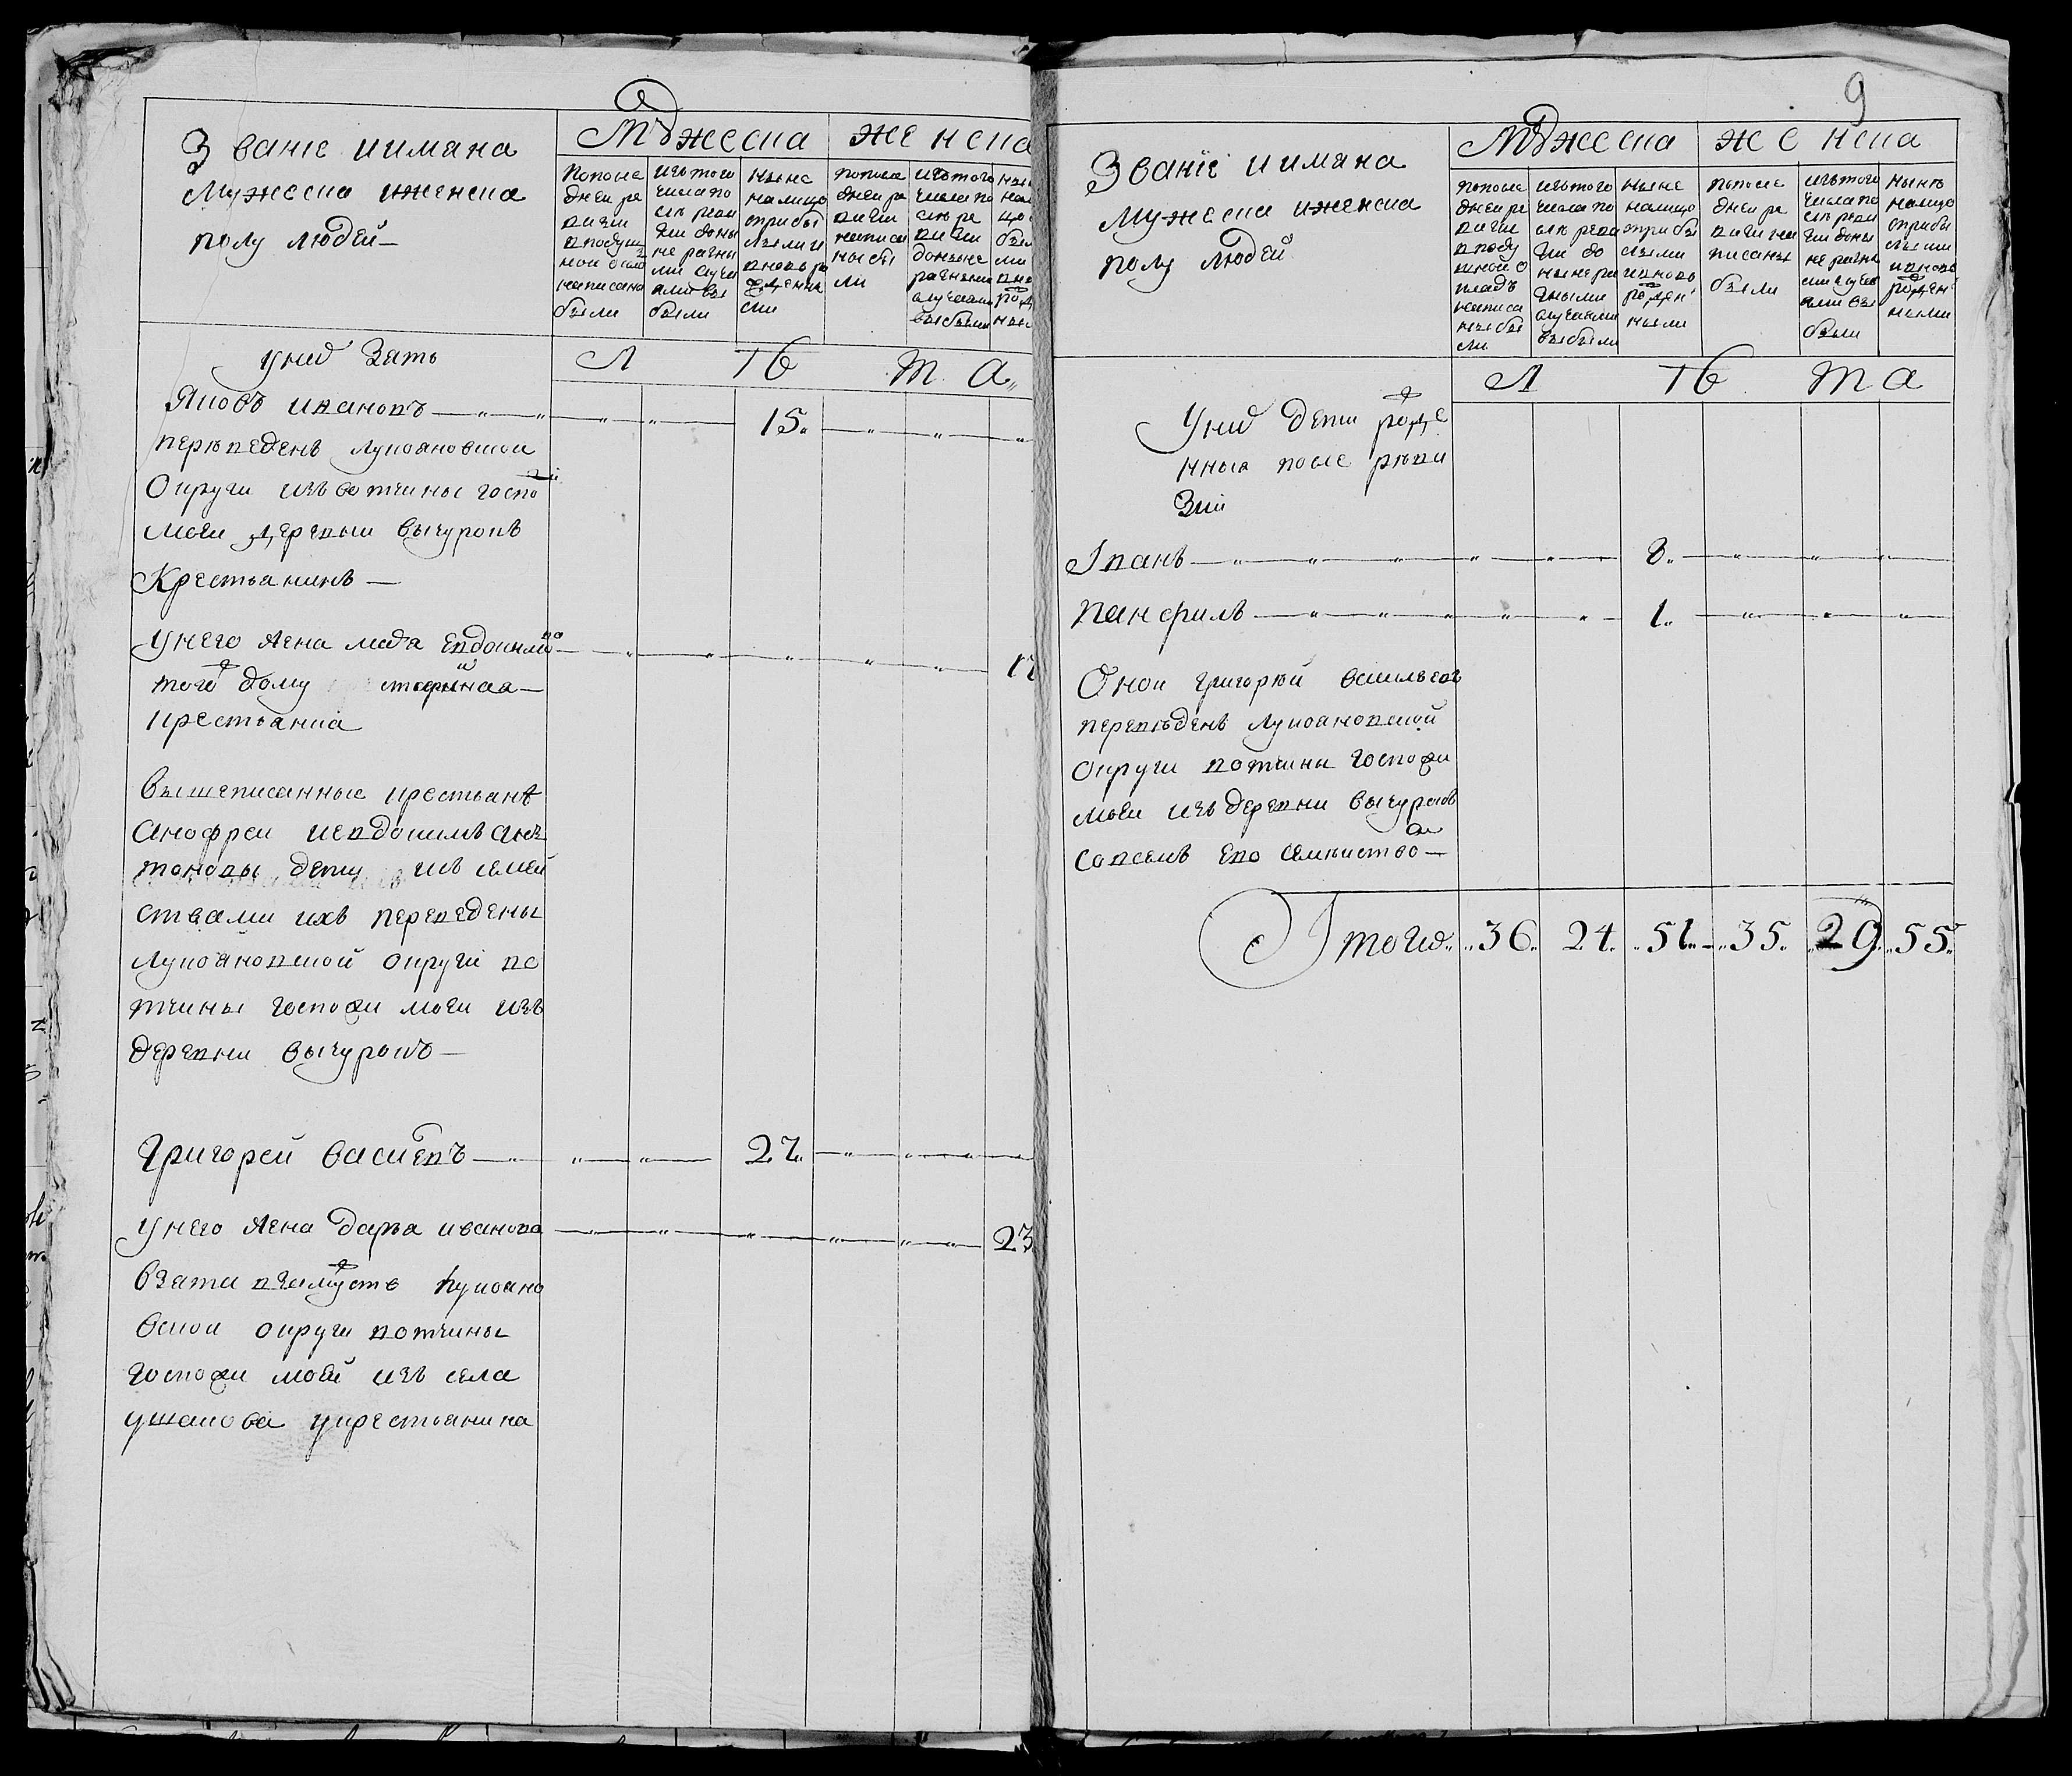 Званiе иимяна
Мужеска иженска
полу людей
Мужеска
женска
попосле
дней ре
визии
вподуш
ной окла
написано
были
изътого
числа по
сле реви
зии доны
не разны
ми случа
ями вы
были
ныне
налицо
сприбы
лыми и
вновь ро
жденны
ми
попосле
дней ре
визии
написа
ны бы
ли
изътого
числа по
сле ре
визии
доныне
разными
случаями
выбыли
Л Ѣ Т А
уних зять
Яковъ ивановъ 15
переведенъ лукояновской
Округи изъвотчины госпо
жи моеи деревни вычуровъ
Крестьянинъ
Унего жена млада Евдокимо
того дому старинная
крестьянка
вышеписанные крестьяне
Анофреи иевдокимъ Анъ
тоновы дети ихъ семей
ствами ихъ переведены
Лукояновской округи во
тчины госпожи моеи изъ
деревни вычуровъ
Григорей васильевъ 22
Унего жена дарья иванова 23
взята взамужство Лукояно
вскои округи вотчины
госпожи моей изъ села
ушакова укрестьянина
9
Званiе иимяна
Мужеска иженска
полу людей
Мужеска
женска
попосле
дней ре
визии
вподу
шной о
кладъ
написа
ны бы
ли
изътого
числа по
сле реви
зии до
ныне ра
зными
случаями
выбыли
ныне
налицо
сприбы
лыми
ивновь
рожден
ными
попосле
дней ре
визии на
писаны
были
изътого
числа по
сле реви
зии доны
не разны
ми случа
ями вы
были
нынѣ
налицо
сприбы
лыми
ивновь
рожден
ными
Л Ѣ Т А
Уних дети рожде
нныя после рѣви
зии
Iванъ 8
панфилъ 1
Оной григорѣй васильевъ
переведенъ лукояновской
округи вотчины госпожи
моеи изъ деревни вычуровъ
совсемъ ево семѣиство
Iтого 36 24 51 35 29 55